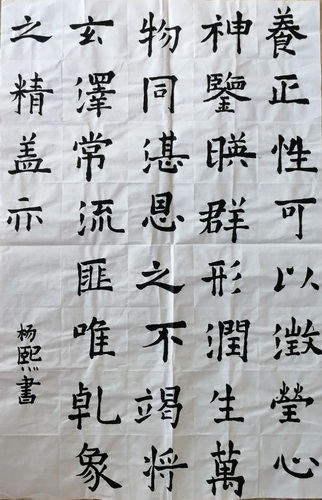 養正性可以澂瑩心
神鑒暎群形潤生萬
物同湛恩之不竭將
玄澤常流匪唯乹象
之精盖亦
杨熙書